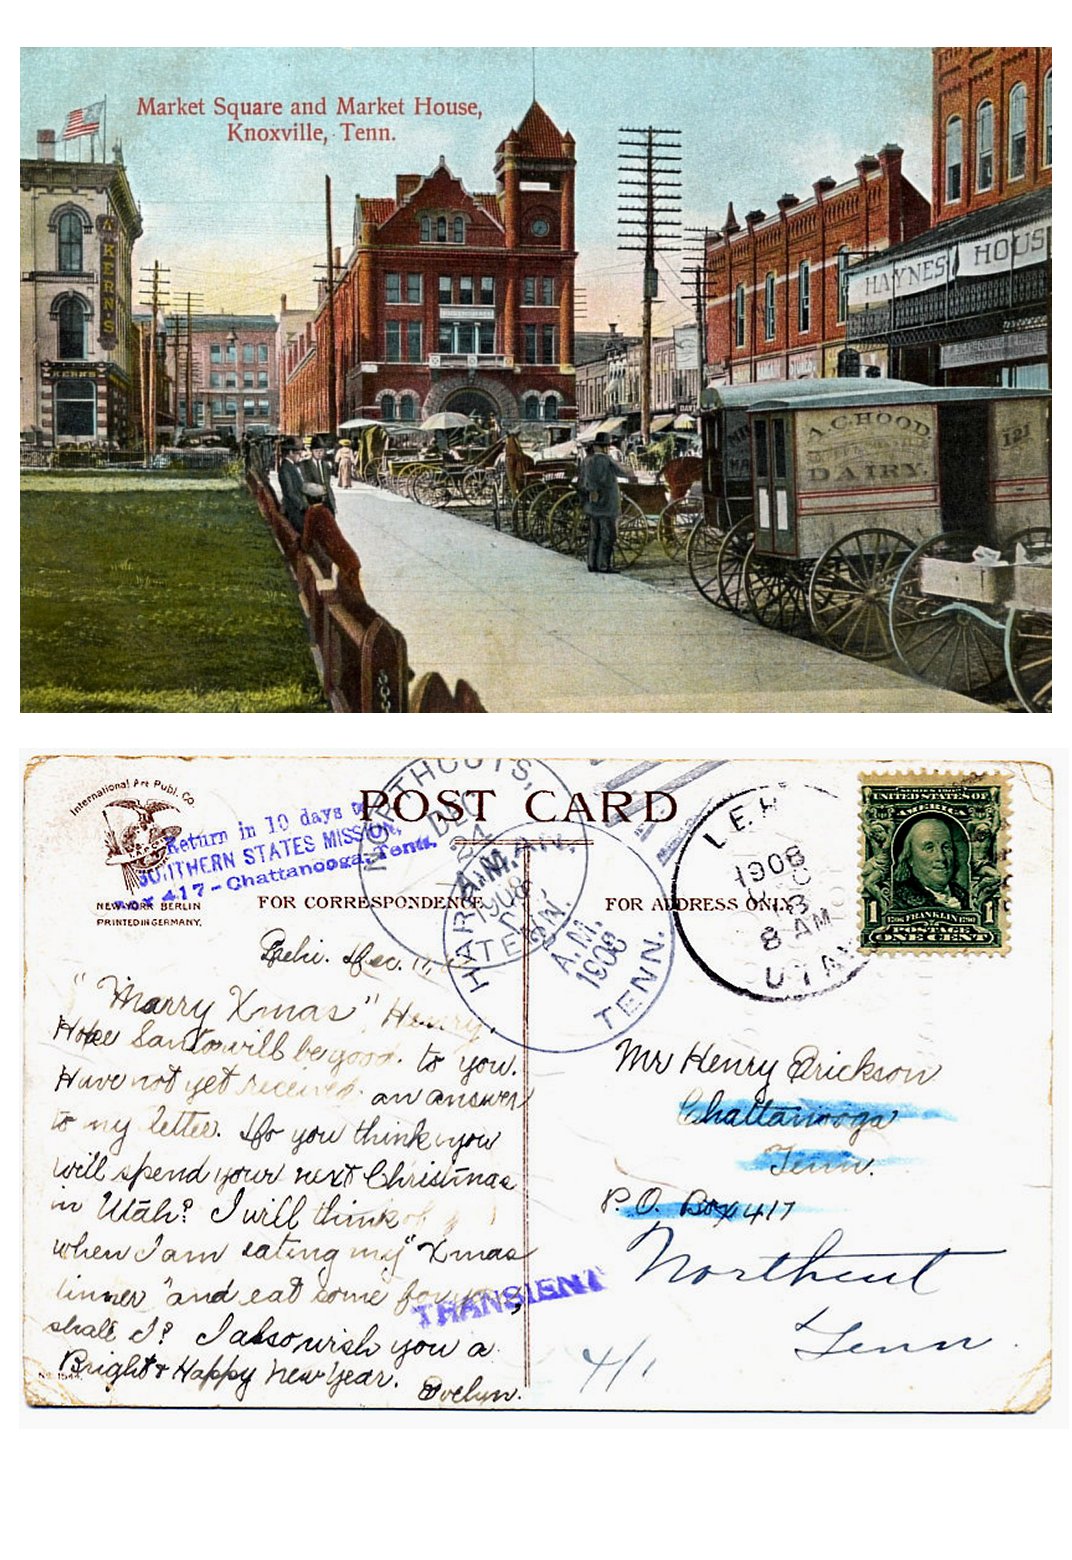 Market Square and Market House,
Knoxville, Tenn.
KERN'S
KERN'S
HAYNES HOUSE
A.C. HOOD
DAIRY.
121
International Art Publ. Co.
Return in 10 days to
SOUTHERN STATES MISSION,
Box 417 - Chattanooga, Tenn.
NEW-YORK BERLIN
PRINTED IN GERMANY.
POST CARD
FOR CORRESPONDENCE
FOR ADDRESS ONLY
NORTHCUTS,
DEC
21
A.M.
1908
TENN.
HARRIMAN,
A.M.
1908
TENN.
LEHI
1908
DEC
13
8 AM
UTAH
SERIES 1902
UNITED STATES OF
AMERICA
1 FRANKLIN 1
1706 1790
POSTAGE
ONE CENT
Lehi. Dec. 11,
"Marry Xmas" Henry.
Hope Santa will be good to you.
Have not yet received an answer
to my letter. Do you think you
will spend your next Christmas
in Utah? I will think of
when I am eating my "Xmas
dinner" and eat some for you,
shall I? I also wish you a
Bright & Happy New Year.
Evelyn.
TRANSIENT
Mr Henry Erickson
Chattanooga
Tenn.
P.O. Box 417
Northcut
Tenn.
4/1